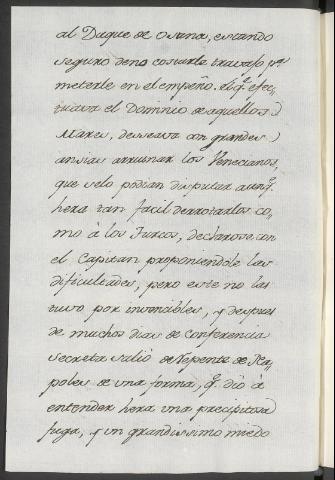 al Duque de Osuna, estando
seguro deno costarle travajo pª
meterle en el empeño. El q̃ afec-
tuava el Dominio de aquellos
Mares, desseava con grandes
ansias arruinar los Venecianos,
que selo podian disputar aunq̃
hera tan facil derrotarlos co-
mo à los Turcos, declarose con
el Capitan proponiendole las
dificultades, pero este no las
tuvo por invencibles, y despues
de muchos dias de conferencia
secreta salió de repente de Na-
poles de una forma, q̃ dió à
entender hera una precipitosa
fuga, y un grandissimo miedo